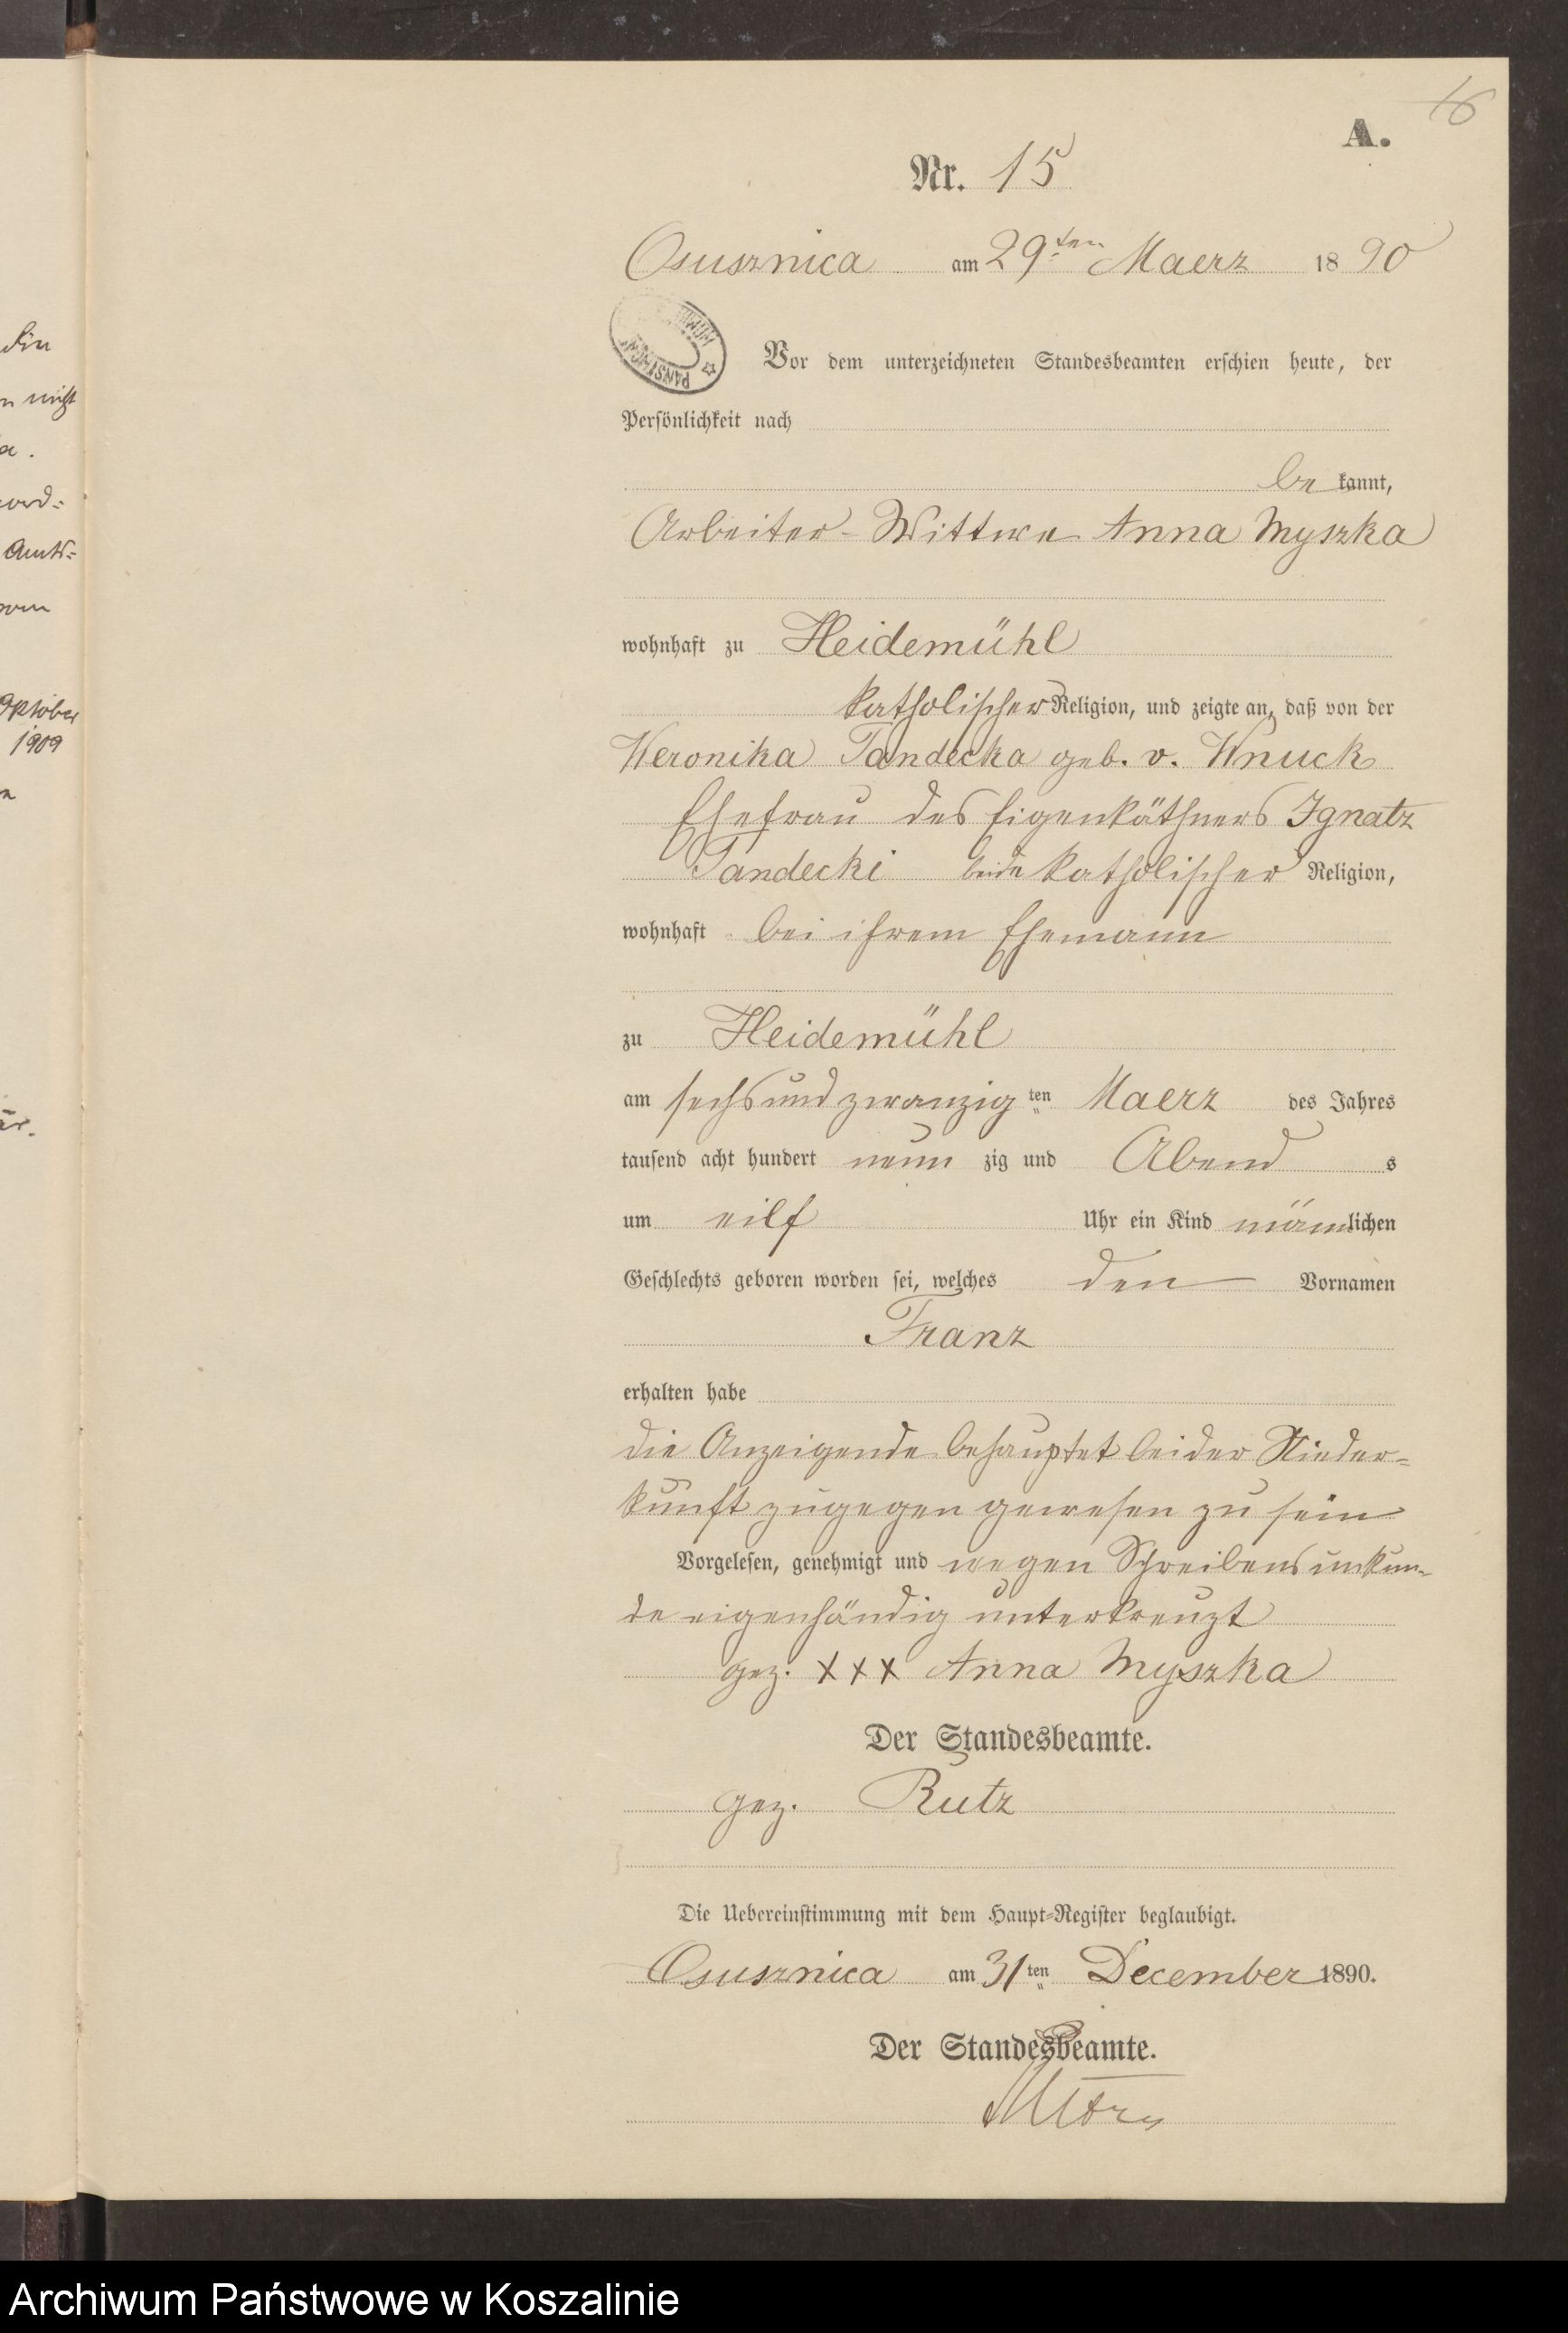 16
A.
Nr. 15
Osusznica am 29ten Maerz 1890
Vor dem unterzeichneten Standesbeamten erschien heute, der
Persönlichkeit nach
bekannt,
Arbeiter-Wittwe Anna Myszka
wohnhaft zu Heidemühl
katholischer Religion, und zeigte an, daß von der
Weronika Tandecka geb. v. Wnuck
Ehefrau des Eigenkäthners Ignatz
Tandecki beide katholischer Religion,
wohnhaft bei ihrem Ehemann
zu Heidemühl
am sechsundzwanzig ten Maerz des Jahres
tausend acht hundert neun zig und Abend s
um eilf Uhr ein Kind männlichen
Geschlechts geboren worden sei, welches den Vornamen
Franz
erhalten habe
die Anzeigende behauptet bei der Nieder-
kunft zugegen gewesen zu sein
Vorgelesen, genehmigt und wegen Schreibensunkun-
de eigenhändig unterkreuzt
gez. XXX Anna Myszka
Der Standesbeamte.
gez. Rutz
Die Uebereinstimmung mit dem Haupt-Register beglaubigt.
Osusznica am 31 ten December 1890.
Der Standesbeamte.
nicht
Amts-
Oktober
1909
Archiwum Państwowe w Koszalinie